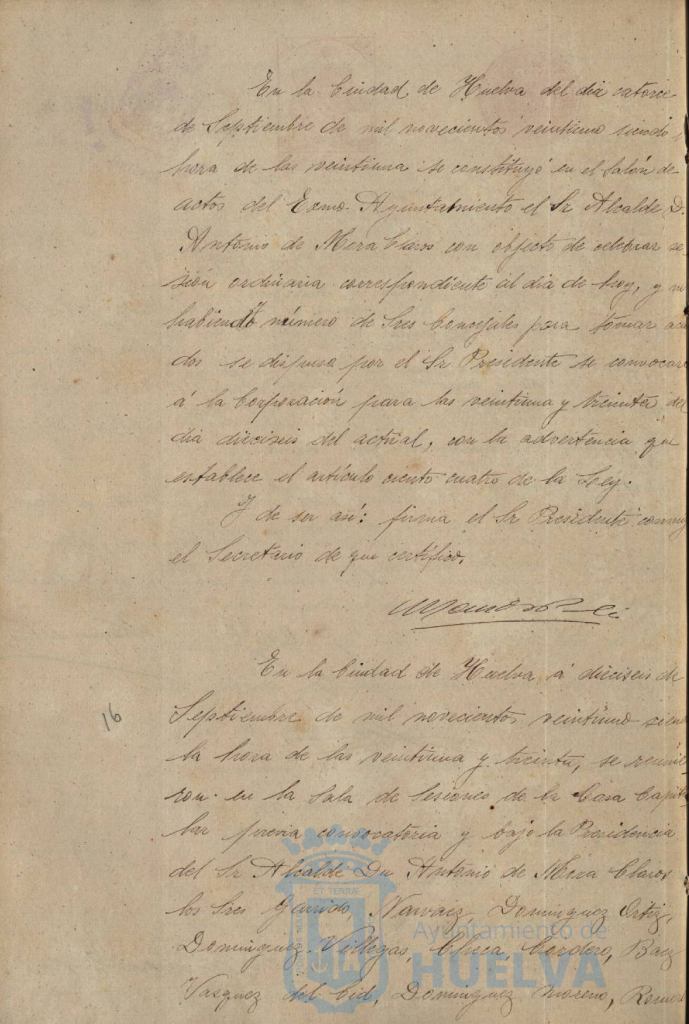 En la Ciudad de Huelva del dia catorce
de Septiembre de mil novecientos veintiuno siendo
hora de las veintiuna se constituyó en el Salón de
actos del Excmo. Ayuntamiento el Sr Alcalde D.
Antonio de Mora Claros con objeto de celebrar se
sión ordinaria correspondiente al dia de hoy, y no
habiendo número de Sres Concejales para tomar acu
dos se dispuso por el Sr Presidente se convocara
á la Corporación para las veintiuna y treinta del
dia dieciseis del actual, con la advertencia que
establece el artículo ciento cuatro de la Ley.
Y de ser así: firma el Sr Presidente conmigo
el Secretario de que certifico.
En la Ciudad de Huelva á dieciseis de
16
Septiembre de mil novecientos veintiuno siend
la hora de las veintiuna y treinta, se reunie
ron en la Sala de Sesiones de la Casa Capitu
lar previa convocatoria y bajo la Presidencia
del Sr Alcalde Dn Antonio de Mora Claros
los Sres Garrido, Narvaez, Dominguez Ortiz,
Dominguez Villegas, Checa, Cordero, Baez
Vasquez del Cid, Dominguez Moreno, Romer
ET TERRÆ
Ayuntamiento de
HUELVA